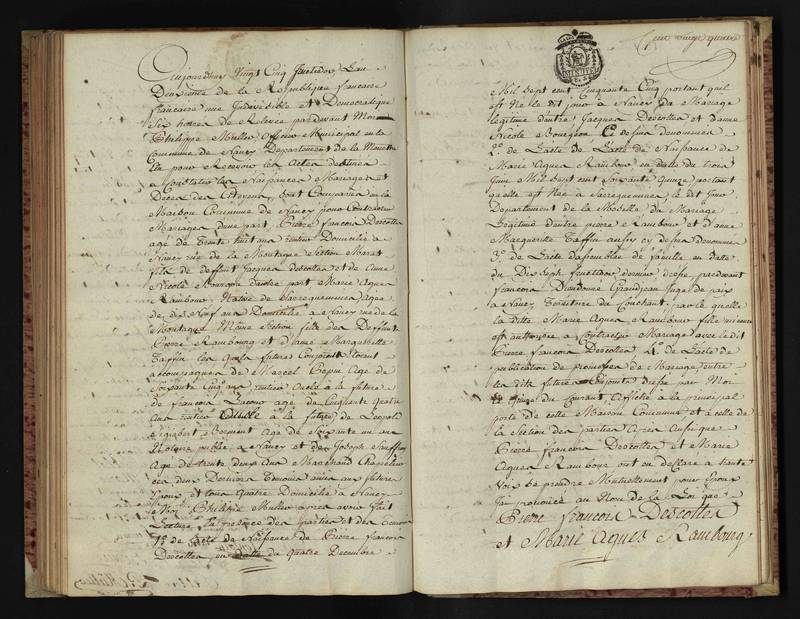 Aujourdhuy Vingt Cinq fructidor L'an
Deuxieme de la Republique francaise
francaise une Indivisible et Democratique
Six heures de Relevée pardevant Moi
Philippe Mutlow Officier Municipal en la
Commune de Nancy Departement de la Meurthe
Elu pour Recevoir les Actes destinés
a Constater les Naissances Mariages et
Deces des Citoyens, sont Comparus en la
Maison Commune de Nancy pour Contracter
Mariages d'une part Pierre francois Descottes
agé de trente huit ans rentier Domicilié a
Nancy rue de la Montagne Section Marat
fils de deffunt Jacques descottes et de Anne
Nicole Bourgeon d'autre part Marie Agnes
Rambourg Native de Sarreguemines Agée
de dix Neuf ans Domiciliée a Nancy rue de la
Montagne Même Section fille des Deffunts
Pierre Rambourg et d'ame Marguerite
Taffin les quels futurs Conjoints étoient
accompagnés de Marcel Pepin Agé de
Soixante Cinq ans rentier Oncle à la future
de francois Lacour agé de Cinquante quatre
ans rentier à la future de Leopold
Bormont Agé de Soixante un ans
Notaire public a Nancy et de Joseph
Agé de trente deux ans Marchand Chapelier
ces deux Derniers Temoins amis aux futurs
Epoux et tous quatre Domiciliés a Nancy
Moi Philippe Mutlow apres avoir fait
Lecture En presence des parties et des temoins
1° de l'acte de Naissance de Pierre francois
Descottes, en datte du quatre Decembre
Cent vingt quinze
MINUTE
Mil Sept cent Cinquante Cinq portant quil
est Né le dit jour a Nancy du Mariage
legitime d'entre Jacques Descottes et d'anne
Nicole Bourgeon Cy dessus denommés
2° de l'acte de Naissance de
Marie Agnes Rambourg en datte du trois
Juin Mil Sept cent Soixante Quinze portant
qu'elle est Née à Sarreguemines le dit jour
Departement de la Moselle du Mariage
Legitime d'entre pierre Rambourg et d'anne
Marguerite Taffin aussi cy dessus denommés
3° de l'acte d'assemblée de famille en datte
du Dix Sept fructidor dernier dressé pardevant
francois Dieudonné Grandjean Juge de paix
a Nancy Territoire du Couchant par le quelle
la ditte Marie Agnes Rambour fille mineure
est authorisée a Contracter Mariage avec le dit
Pierre francois Descottes 4° de l'acte de
publication de promesses de Mariage entre
les dits futurs Conjoints dressé par Moi
le Douze du Courant affiché a la principal
porte de cette Maison Commune et à celle de
la Section des parties Apres aussi que
Pierre francois Descottes et Marie
Agnes Rambour ont eu declaré a haute
Voix se prendre Mutuellement pour Epoux
J'ai prononcé au Nom de la Loi que
Pierre francois Descottes
et Marie Agnes Rambourg